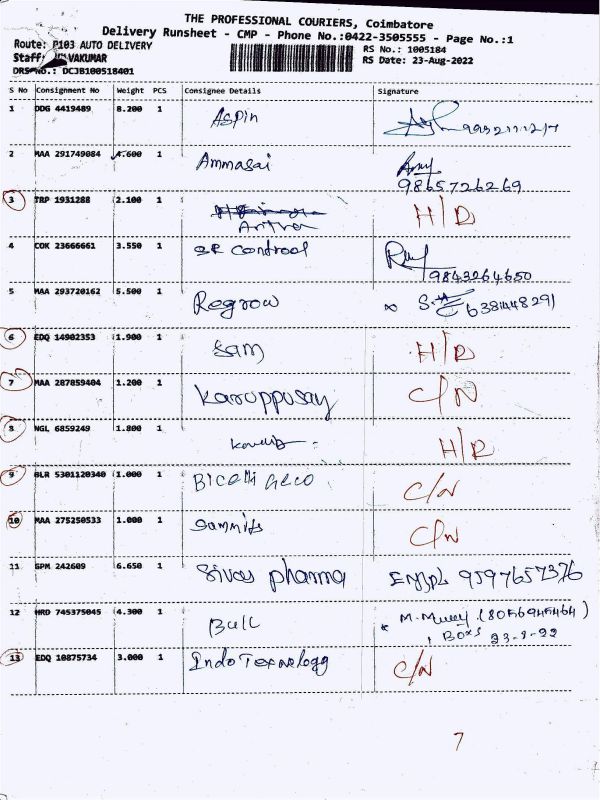 THE PROFESSIONAL COURIERS, Coimbatore
Delivery Runsheet - CMP - Phone No.:0422-3505555 - Page No.:1
Route: P103 AUTO DELIVERY
RS No.: 1005184
Staff: VAKUMAR
RS Date: 23-Aug-2022
DRS No.: DCJB100518401
S No Consignment No Weight PCS Consignee Details Signature
1 DDG 4419489 8.200 1 Aspin
2 MAA 291749084 4.600 1 Ammasai
9865726269
3 TRP 1931288 2.100 1 H/D
4 COK 23666661 3.550 1 SR Controol
9843264650
5 MAA 293720162 5.500 1 Regrow
6 EDQ 14902353 1.900 1 Sam H/D
7 MAA 287859404 1.200 1 Karuppusay C/N
8 NGL 6859249 1.800 1 H/D
9 BLR 5301120340 1.000 1 C/N
10 MAA 275250533 1.000 1 C/N
11 SPM 242609 6.650 1 Sivas pharma 9597657376
12 HRD 745375045 4.300 1 Bull M. (8056945464)
1 Boxs 23-8-22
13 EDQ 10875734 3.000 1 Indo Texnology C/N
7